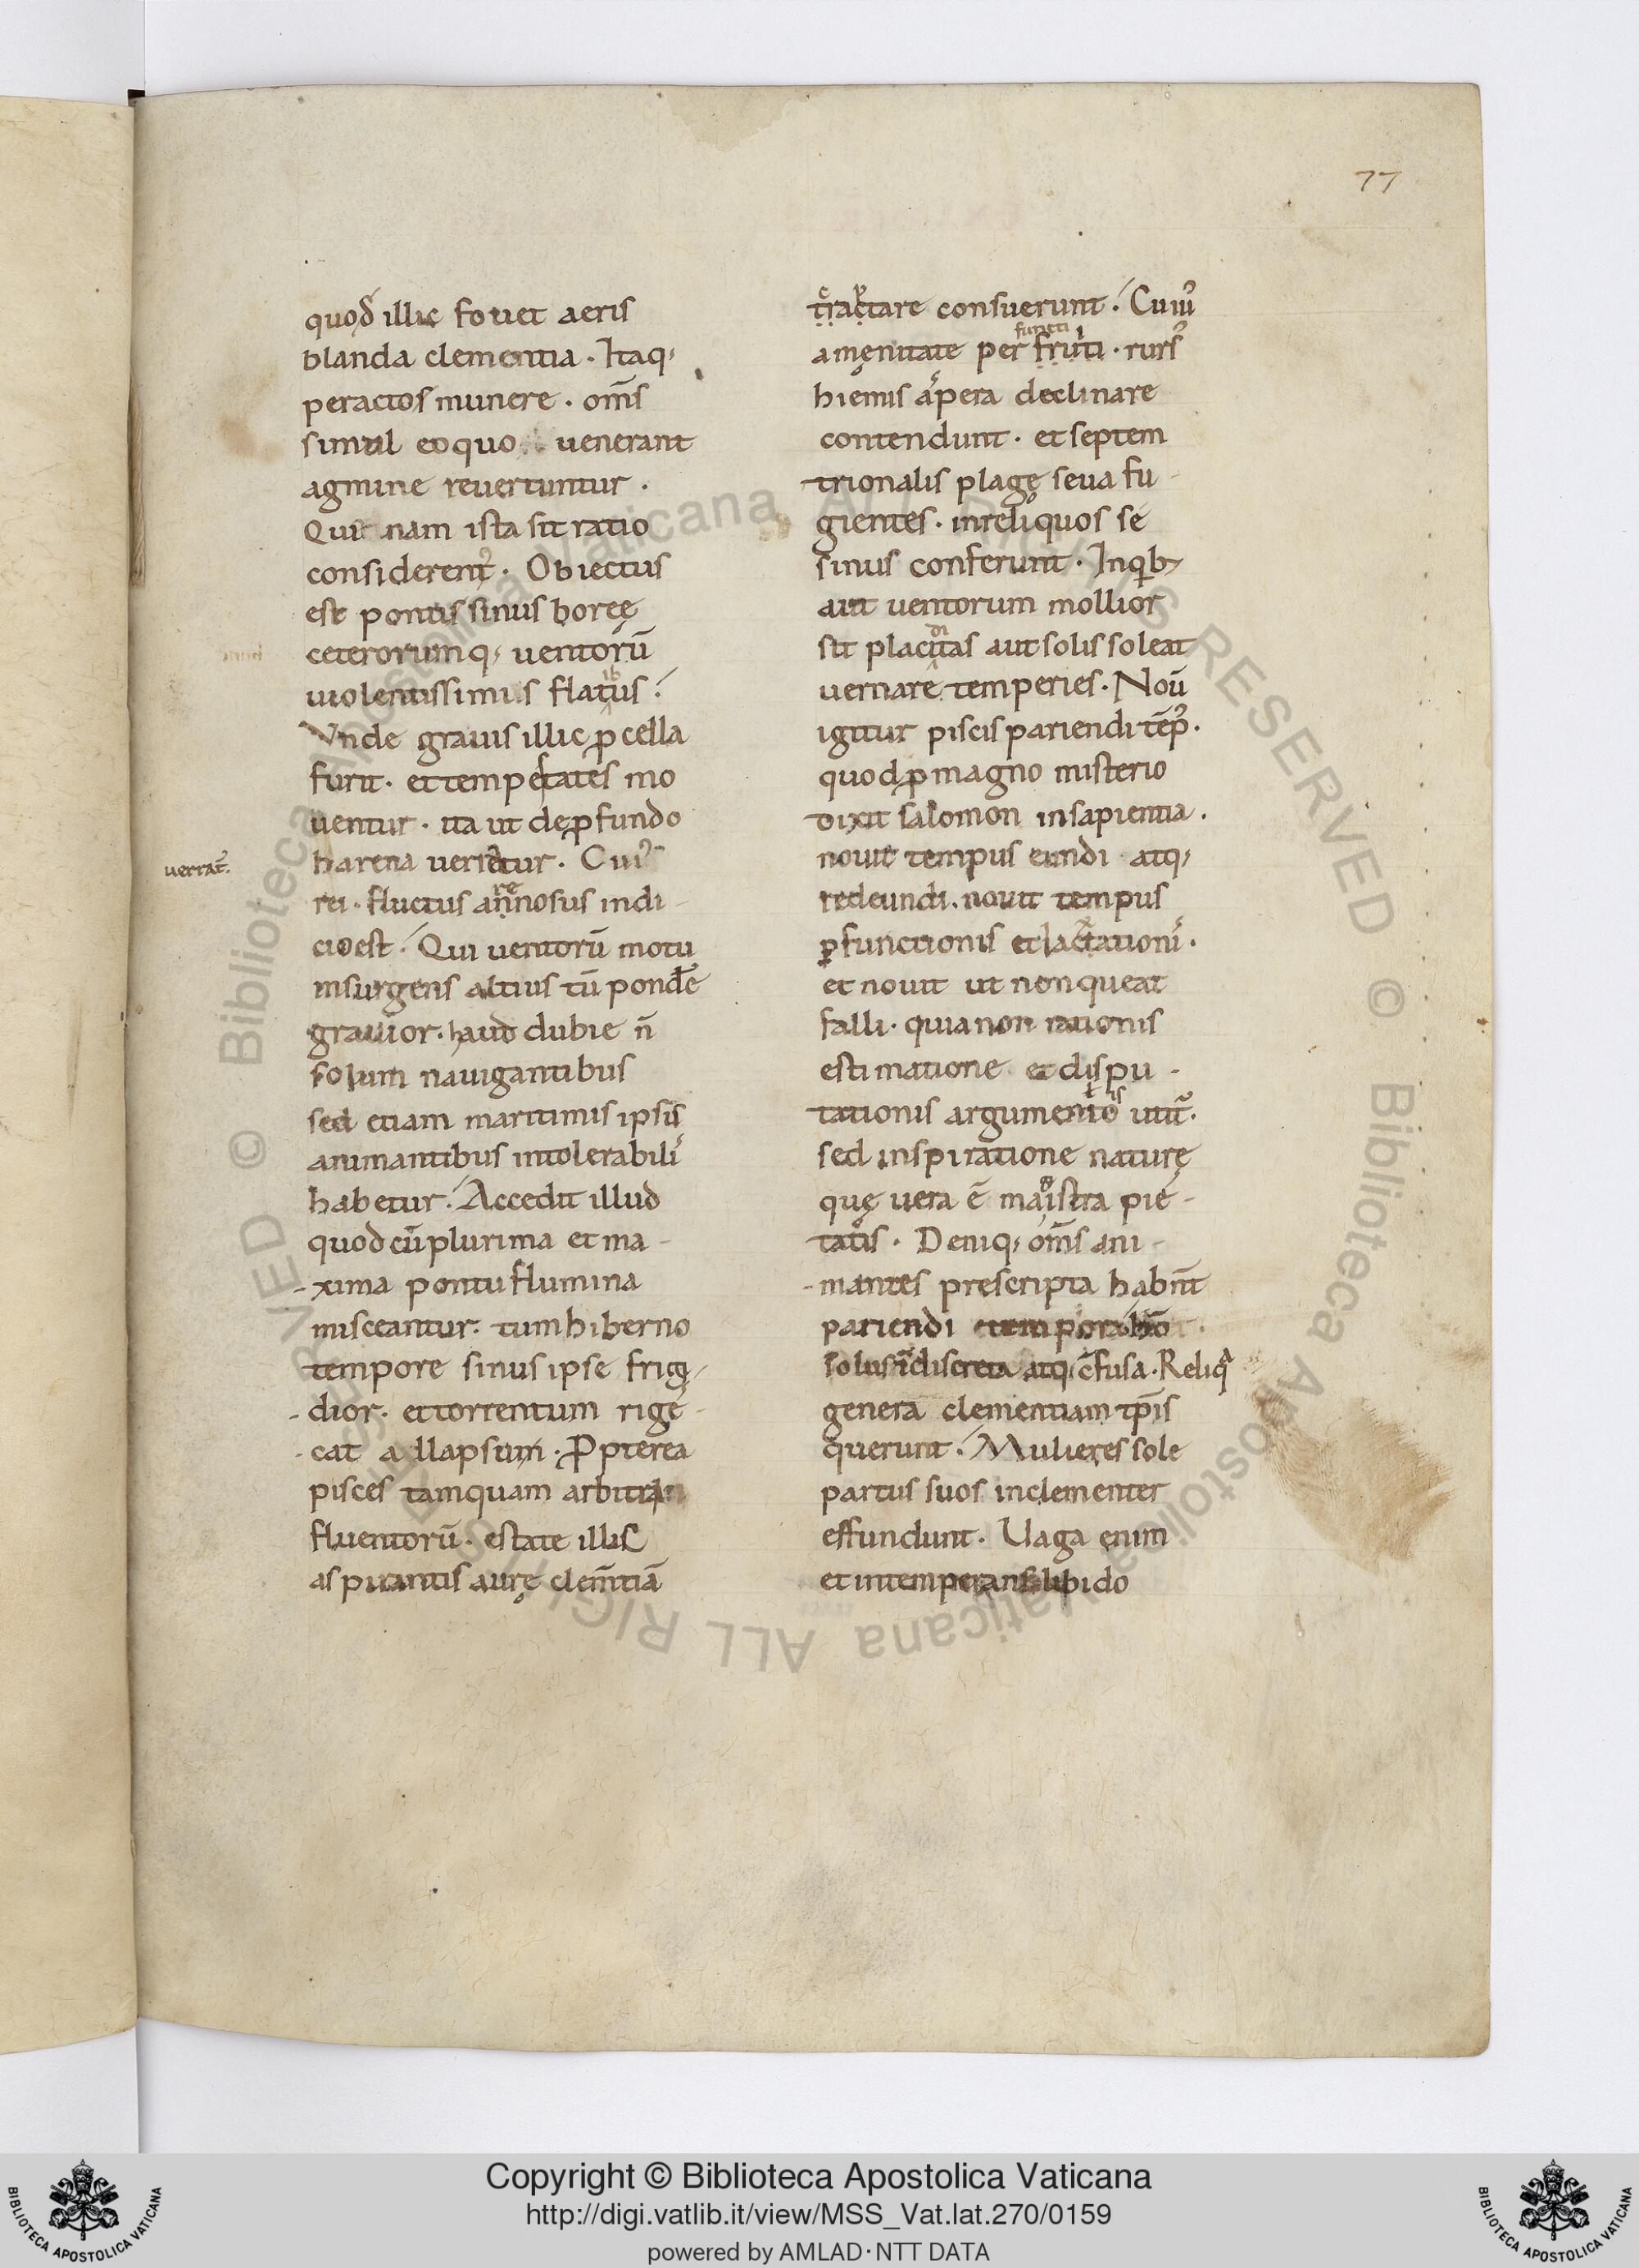 77
quod illic fouet aeris
blanda clementia. Itaq;
peractos munere. oms̄
simul eo quo uenerant
agmine reuertuntur.
Qui nam ista sit ratio
considerem᷒. Obiectus
est pontus sinus boreę
ceterorumq; uentorū
uiolentissimus flatus ib;
Vnde grauis illic ꝓcella
furit. et tempestates mo
uentur. ita ut de ꝓfundo
harena uerratur. Cui᷒
uerrat᷒.
rei. fluctus annosus re indi-
cio est. Qui uentorū motu
insurgens altius tū pondĕ
grauior. haud dubie n̄
solum nauigantibus
sed etiam maritimis ipsis
animantibus intolerabilis
habetur. Accedit illud
quod cū plurima et ma-
-xima pontu flumina
misceantur. tum hiberno
tempore sinus ipse frigi-
-dior. et torrentum rige-
-cat allapsum. Ꝓpterea
pisces tamquam arbitri
fluentorū. estate illis
aspirantis aurę clem̄tiā
tractare consuerunt. Cuiu᷒
amęnitate per fruiti functi. rurs᷒
hiemis aspera declinare
contendunt. et septem
trionalis plagę seua fu-
gientes. in reliquos se
sinus conferunt. In qib;
aut uentorum mollior
sit placitas aut solis soleat
uernare temperies. Nouit
igitur piscis pariendi tēp᷒.
quod ꝓ magno misterio
dixit salomon in sapientia.
nouit tempus eundi atq;
redeundi. nouit tempus
ꝑfunctionis et lactationis.
et nouit ut non queat
falli. quia non rationis
estimatione et dispu-
tationis argumento is utit᷒.
sed inspiratione naturę
quę uera ē magistra pie-
tatis. Deniq; oms̄ ani-
-mantes prescripta habn̄t
pariendi tempora. hō
solus indiscreta atq; c̄fusa. Reliqa
genera clementiam tp̄is
querunt. Mulieres sole
partus suos inclementer
effundunt. Uaga enim
et intemperans libido
Copyright © Biblioteca Apostolica Vaticana
http://digi.vatlib.it/view/MSS_Vat.lat.270/0159
powered by AMLAD·NTT DATA
BIBLIOTECA APOSTOLICA VATICANA
BIBLIOTECA APOSTOLICA VATICANA
© Biblioteca Apostolica Vaticana ALL RIGHTS RESERVED © Biblioteca Apostolica Vaticana ALL RIGHTS RESERVED